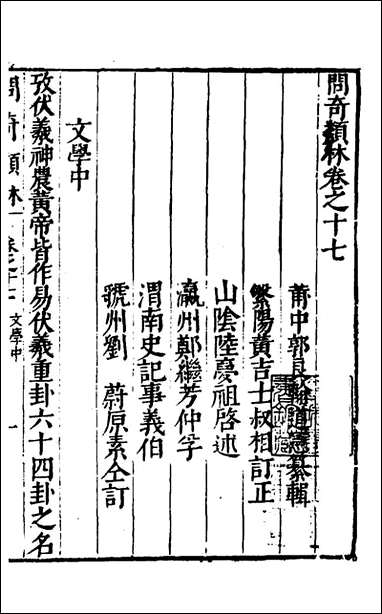 問奇類林卷之十七
莆中郭良翰道憲纂輯
繁陽黃吉士叔相訂正
山陰陸慶祖啓述
瀛州鄭繼芳仲孚
渭南史記事義伯
虢州劉 蔚原素仝訂
文學中
攷伏羲神農黃帝皆作易伏羲重卦六十四卦之名
問奇類林 卷之十七 文學中 一